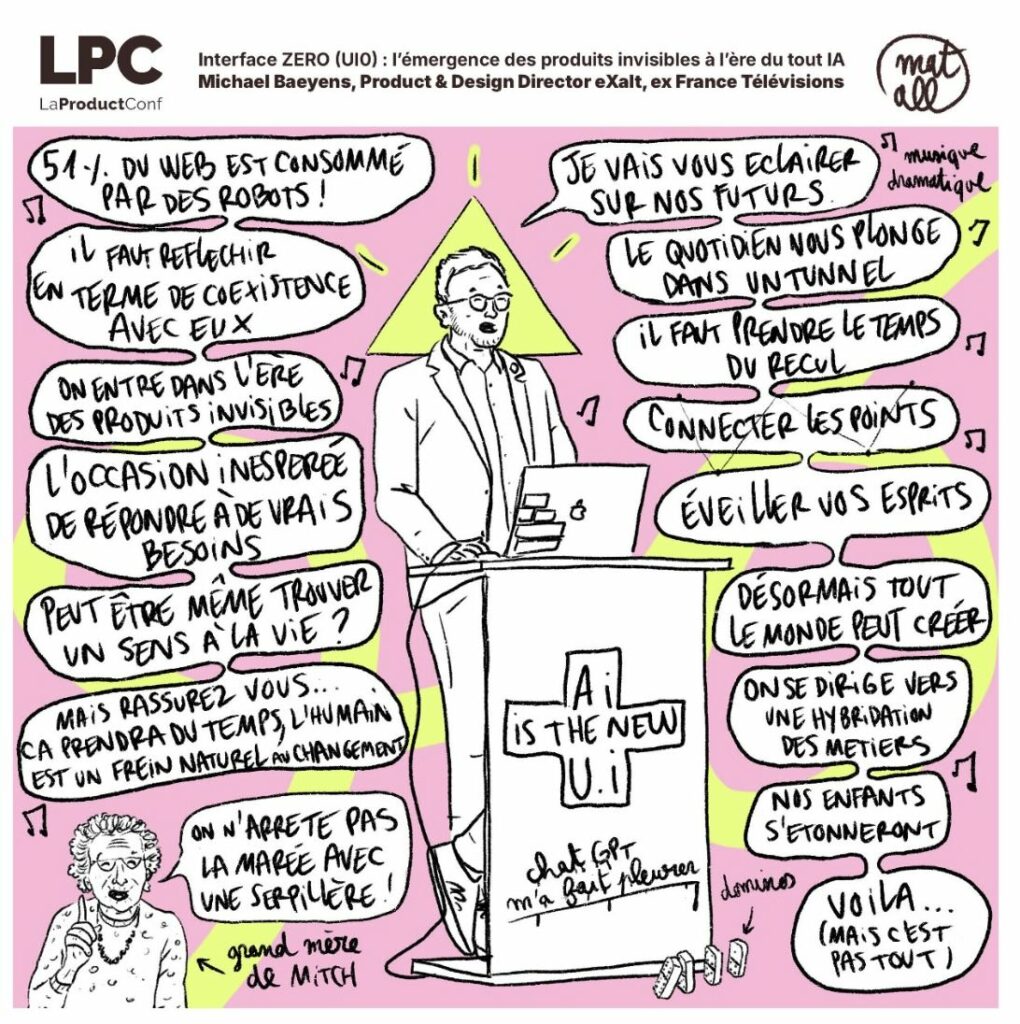 LPC
LaProductConf
Interface ZERO (UI0) : l’émergence des produits invisibles à l’ère du tout IA
Michael Baeyens, Product & Design Director eXalt, ex France Télévisions
mat
all
51% DU WEB EST CONSOMMÉ
PAR DES ROBOTS !
iL FAUT REFLECHIR
EN TERME DE COEXISTENCE
AVEC EUX
ON ENTRE DANS L'ÈRE
DES PRODUITS iNViSiBLES
L'OCCASION iNESPEREÉ
DE RÉPONDRE À DE VRAIS
BESOiNS
PEUT ÊTRE MÊME TROUVER
UN SENS À LA ViE ?
MAiS RASSUREZ VOUS...
CA PRENDRA DU TEMPS, L'HUMAiN
EST UN FREiN NATUREL AU CHANGEMENT
ON N'ARRETE PAS
LA MARÉE AVEC
UNE SERPiLLÈRE !
grand mère
de MiTCH
JE VAIS VOUS ECLAIRER
SUR NOS FUTURS.
musique
dramatique
LE QUOTiDiEN NOUS PLONGE
DANS UN TUNNEL
iL FAUT PRENDRE LE TEMPS
DU RECUL
CONNECTER LES POiNTS
ÉVEiLLER VOS ESPRiTS
DÉSORMAiS TOUT
LE MONDE PEUT CRÉÉR
ON SE DiRiGE VERS
UNE HYBRiDATiON
DES METiERS
NOS ENFANTS
S'ETONNERONT
VOiLA...
(MAiS C'EST
PAS TOUT)
Ai
iS THE NEW
U.i
chat GPT
m'a fait pleurer
dominos